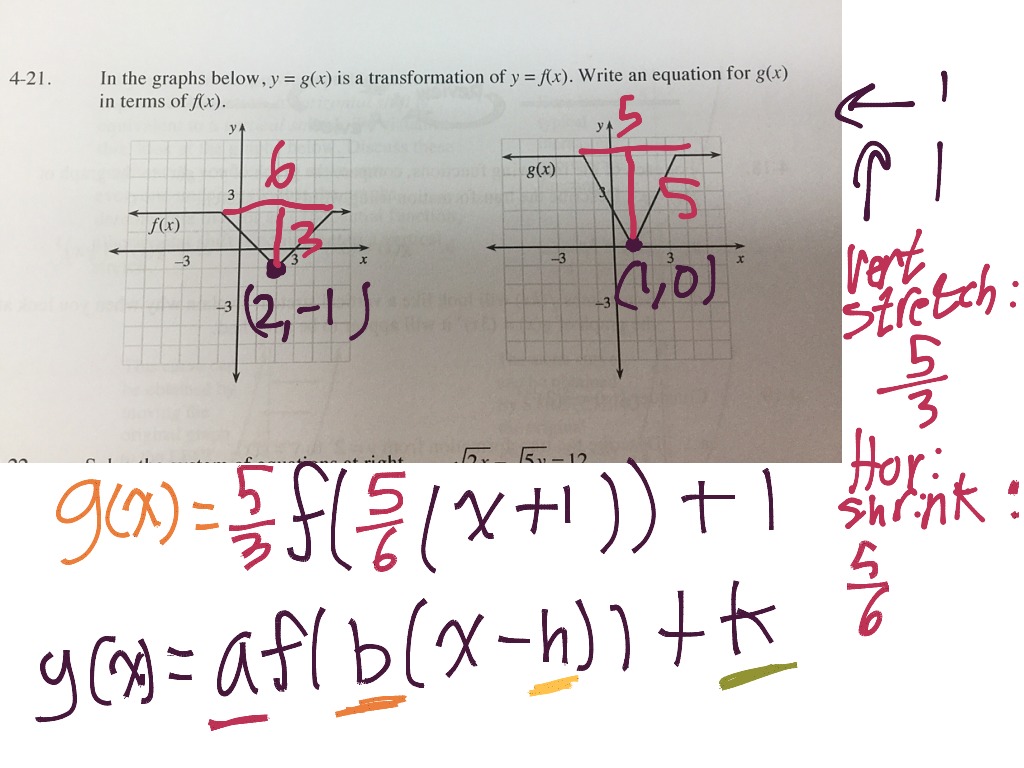 4-21. In the graphs below, y = g(x) is a transformation of y = f(x). Write an equation for g(x)
in terms of f(x).
y
6
3
f(x)
3
-3
3
x
-3
(2,-1)
y
5
g(x)
3
5
-3
3
x
-3
(1,0)
← 1
↑ 1
vert
stretch:
5/3
Hor:
shrink:
5/6
g(x) = 5/3 f(5/6(x+1)) + 1
g(x) = af(b(x-h)) + k